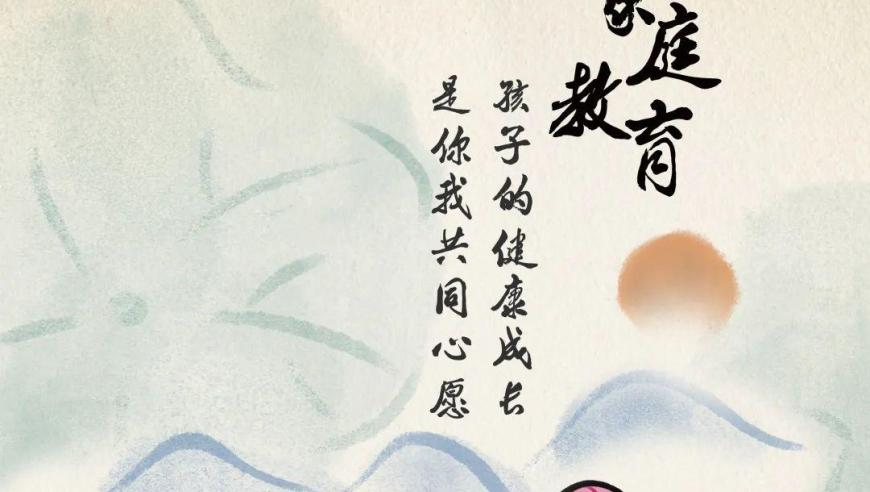 家庭
教育
孩子的健康成长
是你我共同心愿